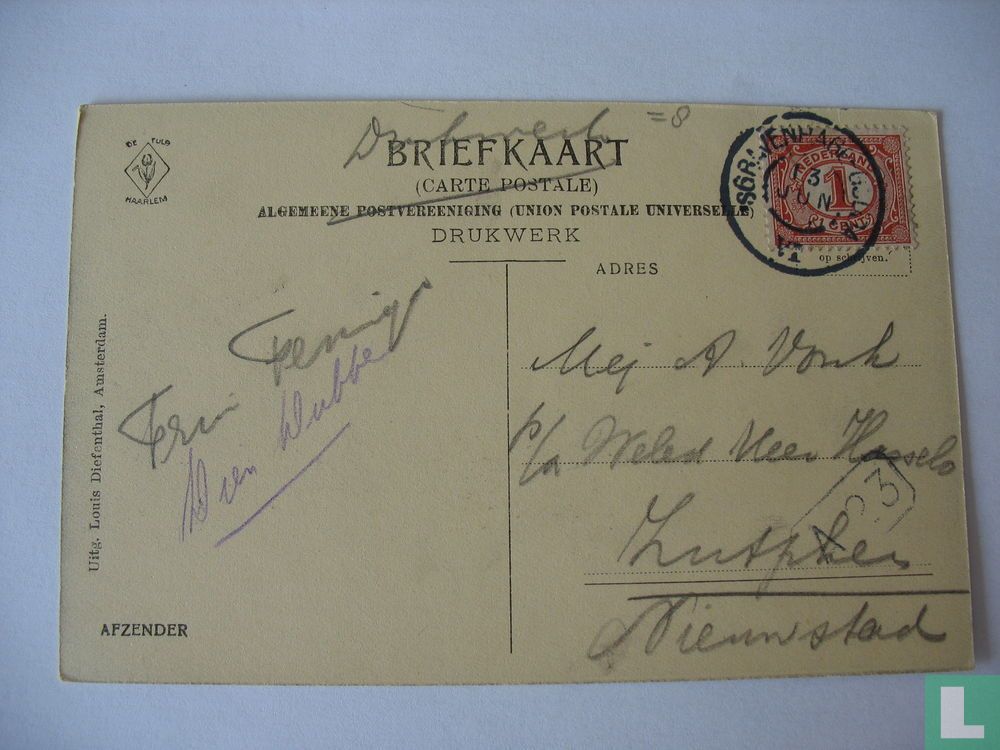 Drukwerk =8
DE TULP
HAARLEM
BRIEFKAART
(CARTE POSTALE)
ALGEMEENE POSTVEREENIGING (UNION POSTALE UNIVERSELLE)
DRUKWERK
'SGRAVENHAGE
3 JUN
NEDERLAND
1
CENT
op schrijven.
ADRES
Mej A. Vonk
p/a Weled Heer Hasselo
Zutphen
Nieuwstad
Dien Dubbe
Uitg. Louis Diefenthal, Amsterdam.
AFZENDER
L